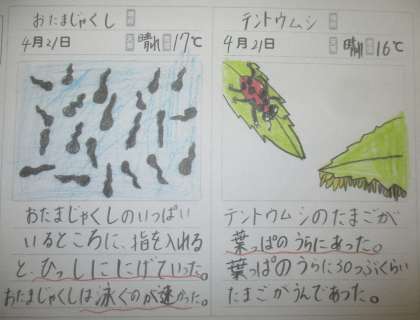 おたまじゃくし
4月21日 晴れ 17℃
おたまじゃくしのいっぱい
いるところに、指を入れる
と、ひっしににげていった。
おたまじゃくしは泳ぐのが速かった。
テントウムシ
4月21日 晴れ 16℃
テントウムシのたまごが
葉っぱのうらにあった。
葉っぱのうらに30つぶくらい
たまごがうんであった。